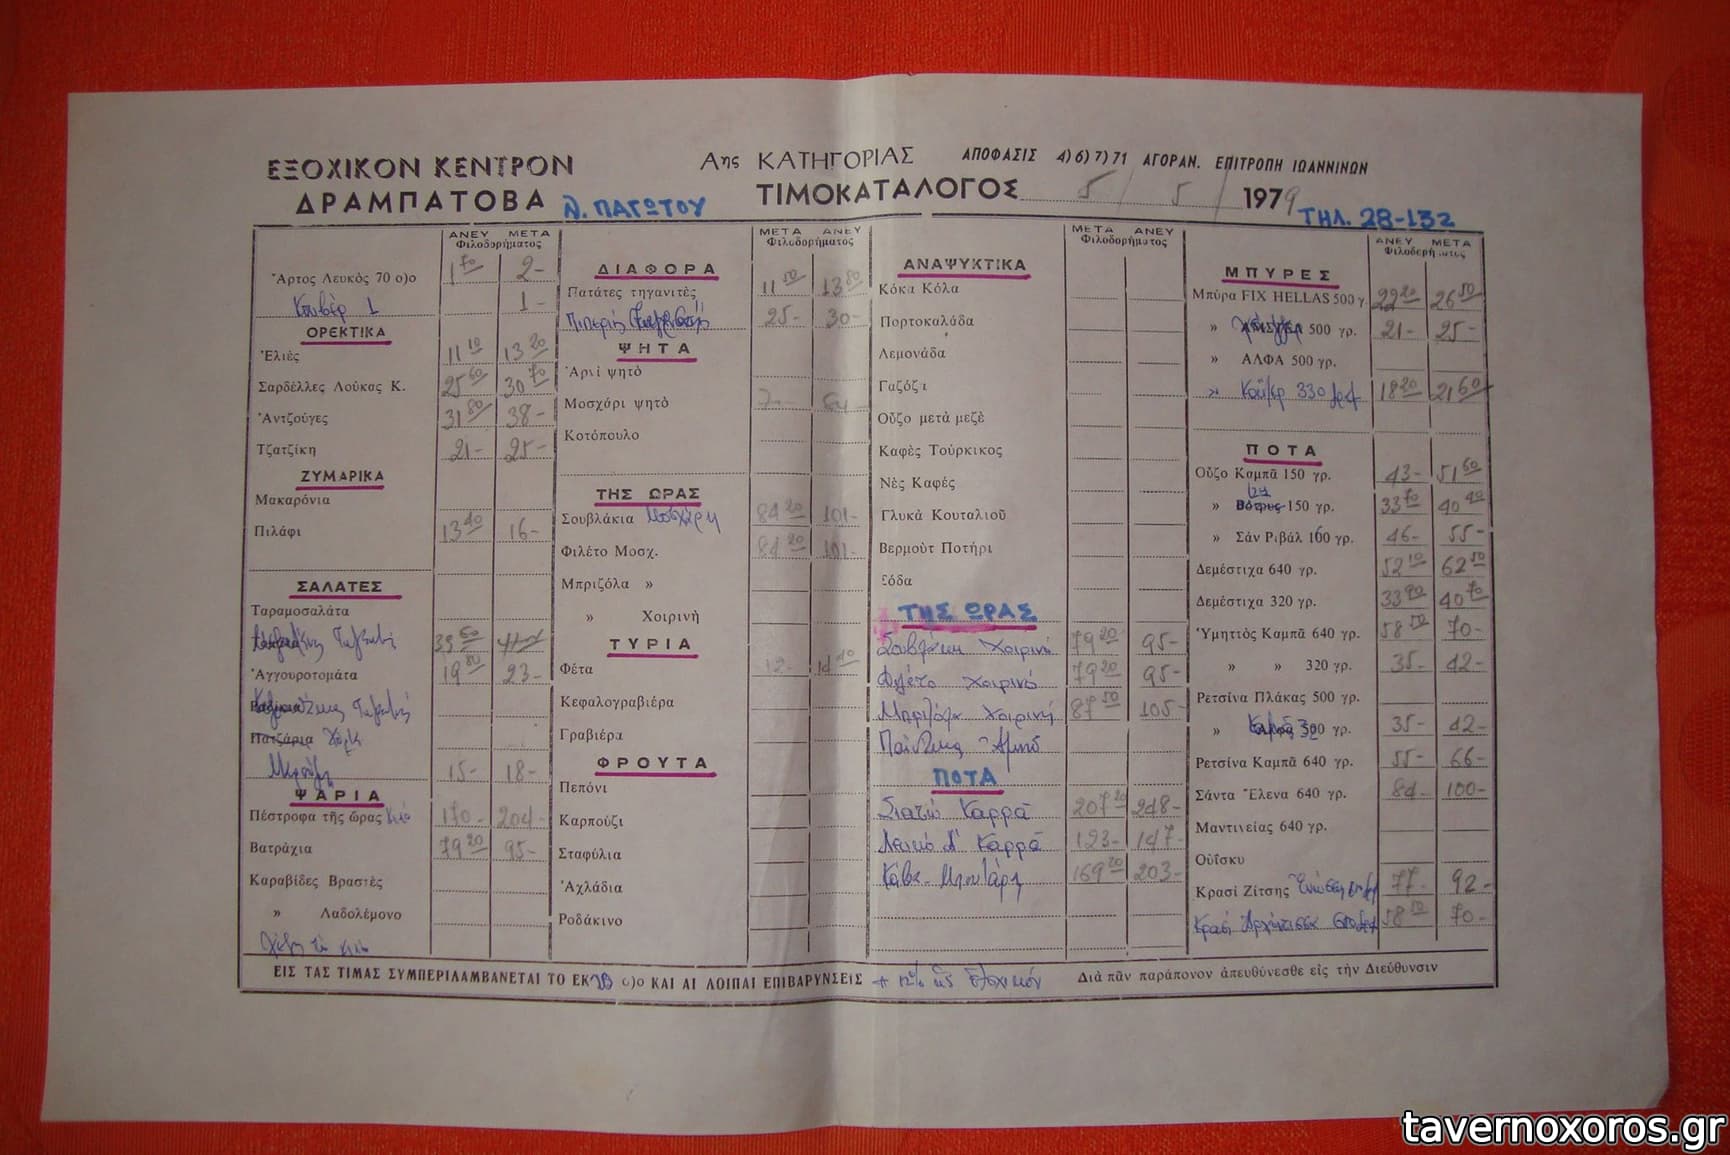 ΕΞΟΧΙΚΟΝ ΚΕΝΤΡΟΝ
ΔΡΑΜΠΑΤΟΒΑ Λ. ΠΑΓΩΤΟΥ
Αης ΚΑΤΗΓΟΡΙΑΣ ΑΠΟΦΑΣΙΣ 4)6)7)71 ΑΓΟΡΑΝ. ΕΠΙΤΡΟΠΗ ΙΩΑΝΝΙΝΩΝ
ΤΙΜΟΚΑΤΑΛΟΓΟΣ 5/5/1979 ΤΗΛ. 28-132
ΑΝΕΥ ΜΕΤΑ
Φιλοδορήματος
Ἄρτος Λευκός 70 ο)ο 1 70 2-
Κουβέρ 1 1-
ΟΡΕΚΤΙΚΑ
Ἐλιές 11 10 13 20
Σαρδέλλες Λούκας Κ. 25 60 30 70
Ἀντζοῦγες 31 80 38-
Τζατζίκη 21- 25-
ΖΥΜΑΡΙΚΑ
Μακαρόνια
Πιλάφι 13 40 16-
ΣΑΛΑΤΕΣ
Ταραμοσαλάτα
Ἀγγουροτομάτα 19 80 23-
Πατζάρια
15- 18-
ΨΑΡΙΑ
Πέστροφα τῆς ὥρας κιλό 170- 204-
Βατράχια 79 20 95-
Καραβίδες Βραστές
» Λαδολέμονο
ΜΕΤΑ ΑΝΕΥ
Φιλοδορήματος
ΔΙΑΦΟΡΑ
Πατάτες τηγανιτές 11 50 13 80
Πιπεριές 25- 30-
ΨΗΤΑ
Ἀρνί ψητὸ
Μοσχάρι ψητὸ
Κοτόπουλο
ΤΗΣ ΩΡΑΣ
Σουβλάκια Μοσχάρι 84 20 101-
Φιλέτο Μοσχ. 84 20 101-
Μπριζόλα »
» Χοιρινὴ
ΤΥΡΙΑ
Φέτα 12- 14 40
Κεφαλογραβιέρα
Γραβιέρα
ΦΡΟΥΤΑ
Πεπόνι
Καρπούζι
Σταφύλια
Ἀχλάδια
Ροδάκινο
ΜΕΤΑ ΑΝΕΥ
Φιλοδορήματος
ΑΝΑΨΥΚΤΙΚΑ
Κόκα Κόλα
Πορτοκαλάδα
Λεμονάδα
Γαζόζι
Οὖζο μετὰ μεζὲ
Καφὲς Τούρκικος
Νὲς Καφές
Γλυκὰ Κουταλιοῦ
Βερμοὺτ Ποτήρι
Σόδα
ΤΗΣ ΩΡΑΣ
Σουβλάκι Χοιρινό 79 20 95-
Φιλέτο χοιρινό 79 20 95-
Μπριζόλα χοιρινή 87 50 105-
ΠΟΤΑ
Σιατώ Καρρᾶ 207 20 248-
Λευκό Καρρᾶ 123- 147-
Κάβα Μπουτάρη 169 20 203-
ΑΝΕΥ ΜΕΤΑ
ΜΠΥΡΕΣ
Μπύρα FIX HELLAS 500 γ. 22 20 26 50
» 500 γρ. 21- 25-
» ΑΛΦΑ 500 γρ.
» 330 γρ. 18 20 21 60
ΠΟΤΑ
Οὖζο Καμπᾶ 150 γρ. 43- 51 60
» 150 γρ. 33 70 40 40
» Σὰν Ριβὰλ 160 γρ. 46- 55-
Δεμέστιχα 640 γρ. 52 10 62 50
Δεμέστιχα 320 γρ. 33 90 40 70
Ὑμηττὸς Καμπᾶ 640 γρ. 58 50 70-
» » 320 γρ. 35- 42-
Ρετσίνα Πλάκας 500 γρ.
» γρ. 35- 42-
Ρετσίνα Καμπᾶ 640 γρ. 55- 66-
Σάντα Ἕλενα 640 γρ. 84- 100-
Μαντινείας 640 γρ.
Οὐΐσκυ
Κρασὶ Ζίτσης 77- 92-
Κρασί 58 50 70-
ΕΙΣ ΤΑΣ ΤΙΜΑΣ ΣΥΜΠΕΡΙΛΑΜΒΑΝΕΤΑΙ ΤΟ ΕΚ ο)ο ΚΑΙ ΑΙ ΛΟΙΠΑΙ ΕΠΙΒΑΡΥΝΣΕΙΣ
Διὰ πᾶν παράπονον ἀπευθύνεσθε εἰς τὴν Διεύθυνσιν
tavernoxoros.gr